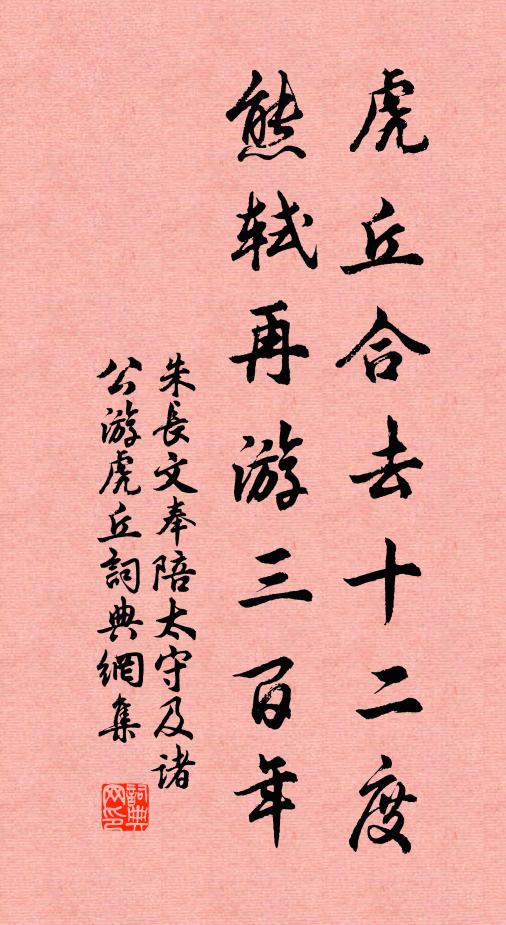 虎丘合去十二度
熊轼再游三百年
朱長文奉陪太守及诸
公游虎丘詞典網集
詞典
网印